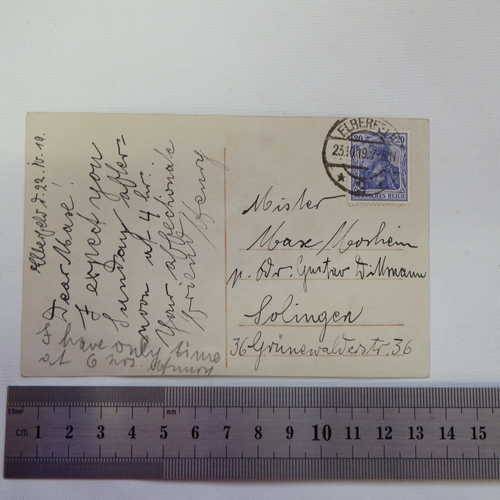 Elberfeld d. 22. IV. 19.
Dear Max!
I expect you
Sunday after-
noon at 4 hr.
Your affectionate
friend Henry
I have only time
at 6 hrs.
ELBERFELD
23.10.19.7-
20
DEUTSCHES REICH
Mister
Max Mosheim
p. Adr. Gustav Dillmann
Solingen
36 Grünewalderstr. 36
cm 1 2 3 4 5 6 7 8 9 10 11 12 13 14 15